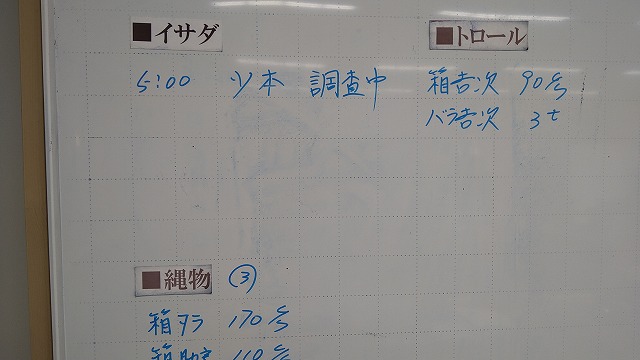 ■イサダ
5:00 ツ本 調査中
■トロール
箱吉次 90ケ
バラ吉次 3t
■縄物 ③
箱タラ 170ケ
110ケ